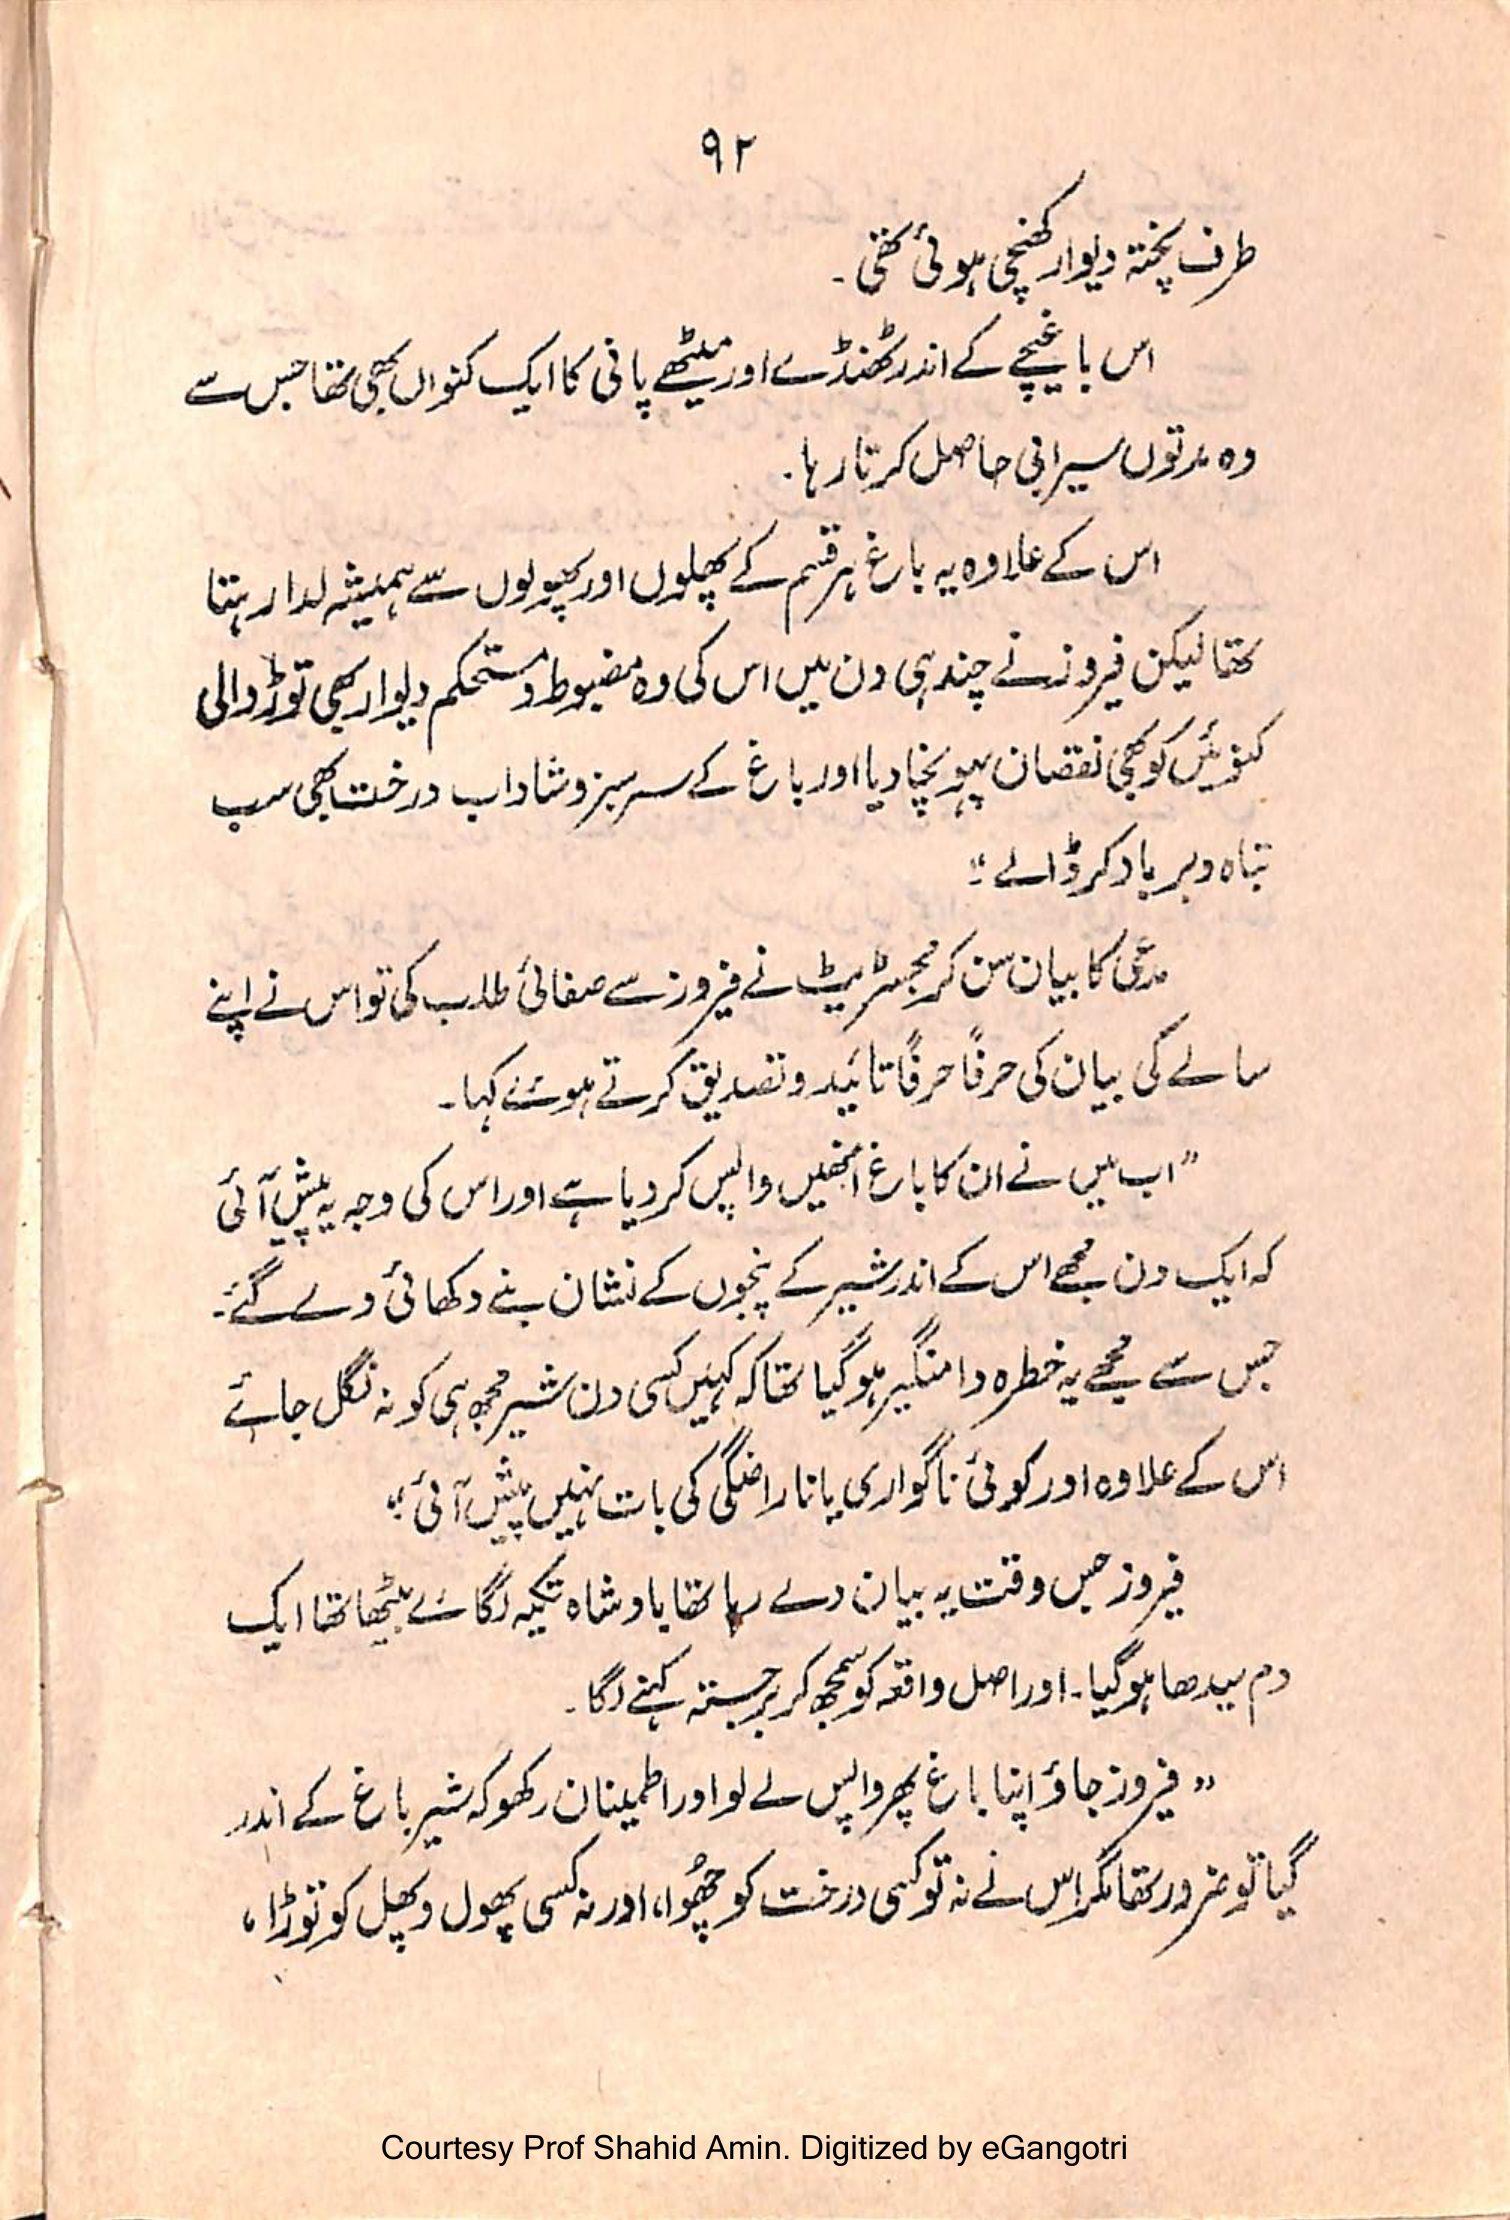 ۹۲
طرف پختہ دیوار کھنچی ہوئی تھی۔
اس باغیچے کے اندر ٹھنڈے اور میٹھے پانی کا ایک کنواں بھی تھا جس سے
وہ مدتوں سیرابی حاصل کرتا رہا۔
اس کے علاوہ یہ باغ ہر قسم کے پھلوں اور پھولوں سے ہمیشہ لدا رہتا
تھا لیکن فیروز نے چند ہی دن میں اس کی وہ مضبوط و مستحکم دیوار بھی توڑ دالی
کنوئیں کو بھی نقصان پہونچا دیا اور باغ کے سرسبز و شاداب درخت بھی سب
تباہ و برباد کر ڈالے۔"
مدعی کا بیان سن کر مجسٹریٹ نے فیروز سے صفائی طلب کی تو اس نے اپنے
سالے کی بیان کی حرفًا حرفًا تائید و تصدیق کرتے ہوئے کہا۔
"اب میں نے ان کا باغ انھیں واپس کر دیا ہے اور اس کی وجہ یہ پیش آئی
کہ ایک دن مجھے اس کے اندر شیر کے پنجوں کے نشان بنے دکھائی دے گئے۔
جس سے مجھے یہ خطرہ دامنگیر ہو گیا تھا کہ کہیں کسی دن شیر مجھ ہی کو نہ نگل جائے
اس کے علاوہ اور کوئی ناگواری یا ناراضگی کی بات نہیں پیش آئی۔"
فیروز جس وقت یہ بیان دے رہا تھا بادشاہ تکیہ لگائے بیٹھا تھا ایک
دم سیدھا ہو گیا۔ اور اصل واقعہ کو سمجھ کر برجستہ کہنے لگا۔
"فیروز جاؤ اپنا باغ پھر واپس لے لو اور اطمینان رکھو کہ شیر باغ کے اندر
گیا تو ضرور تھا مگر اس نے نہ تو کسی درخت کو چھُوا، اور نہ کسی پھول و پھل کو توڑا،
Courtesy Prof Shahid Amin. Digitized by eGangotri